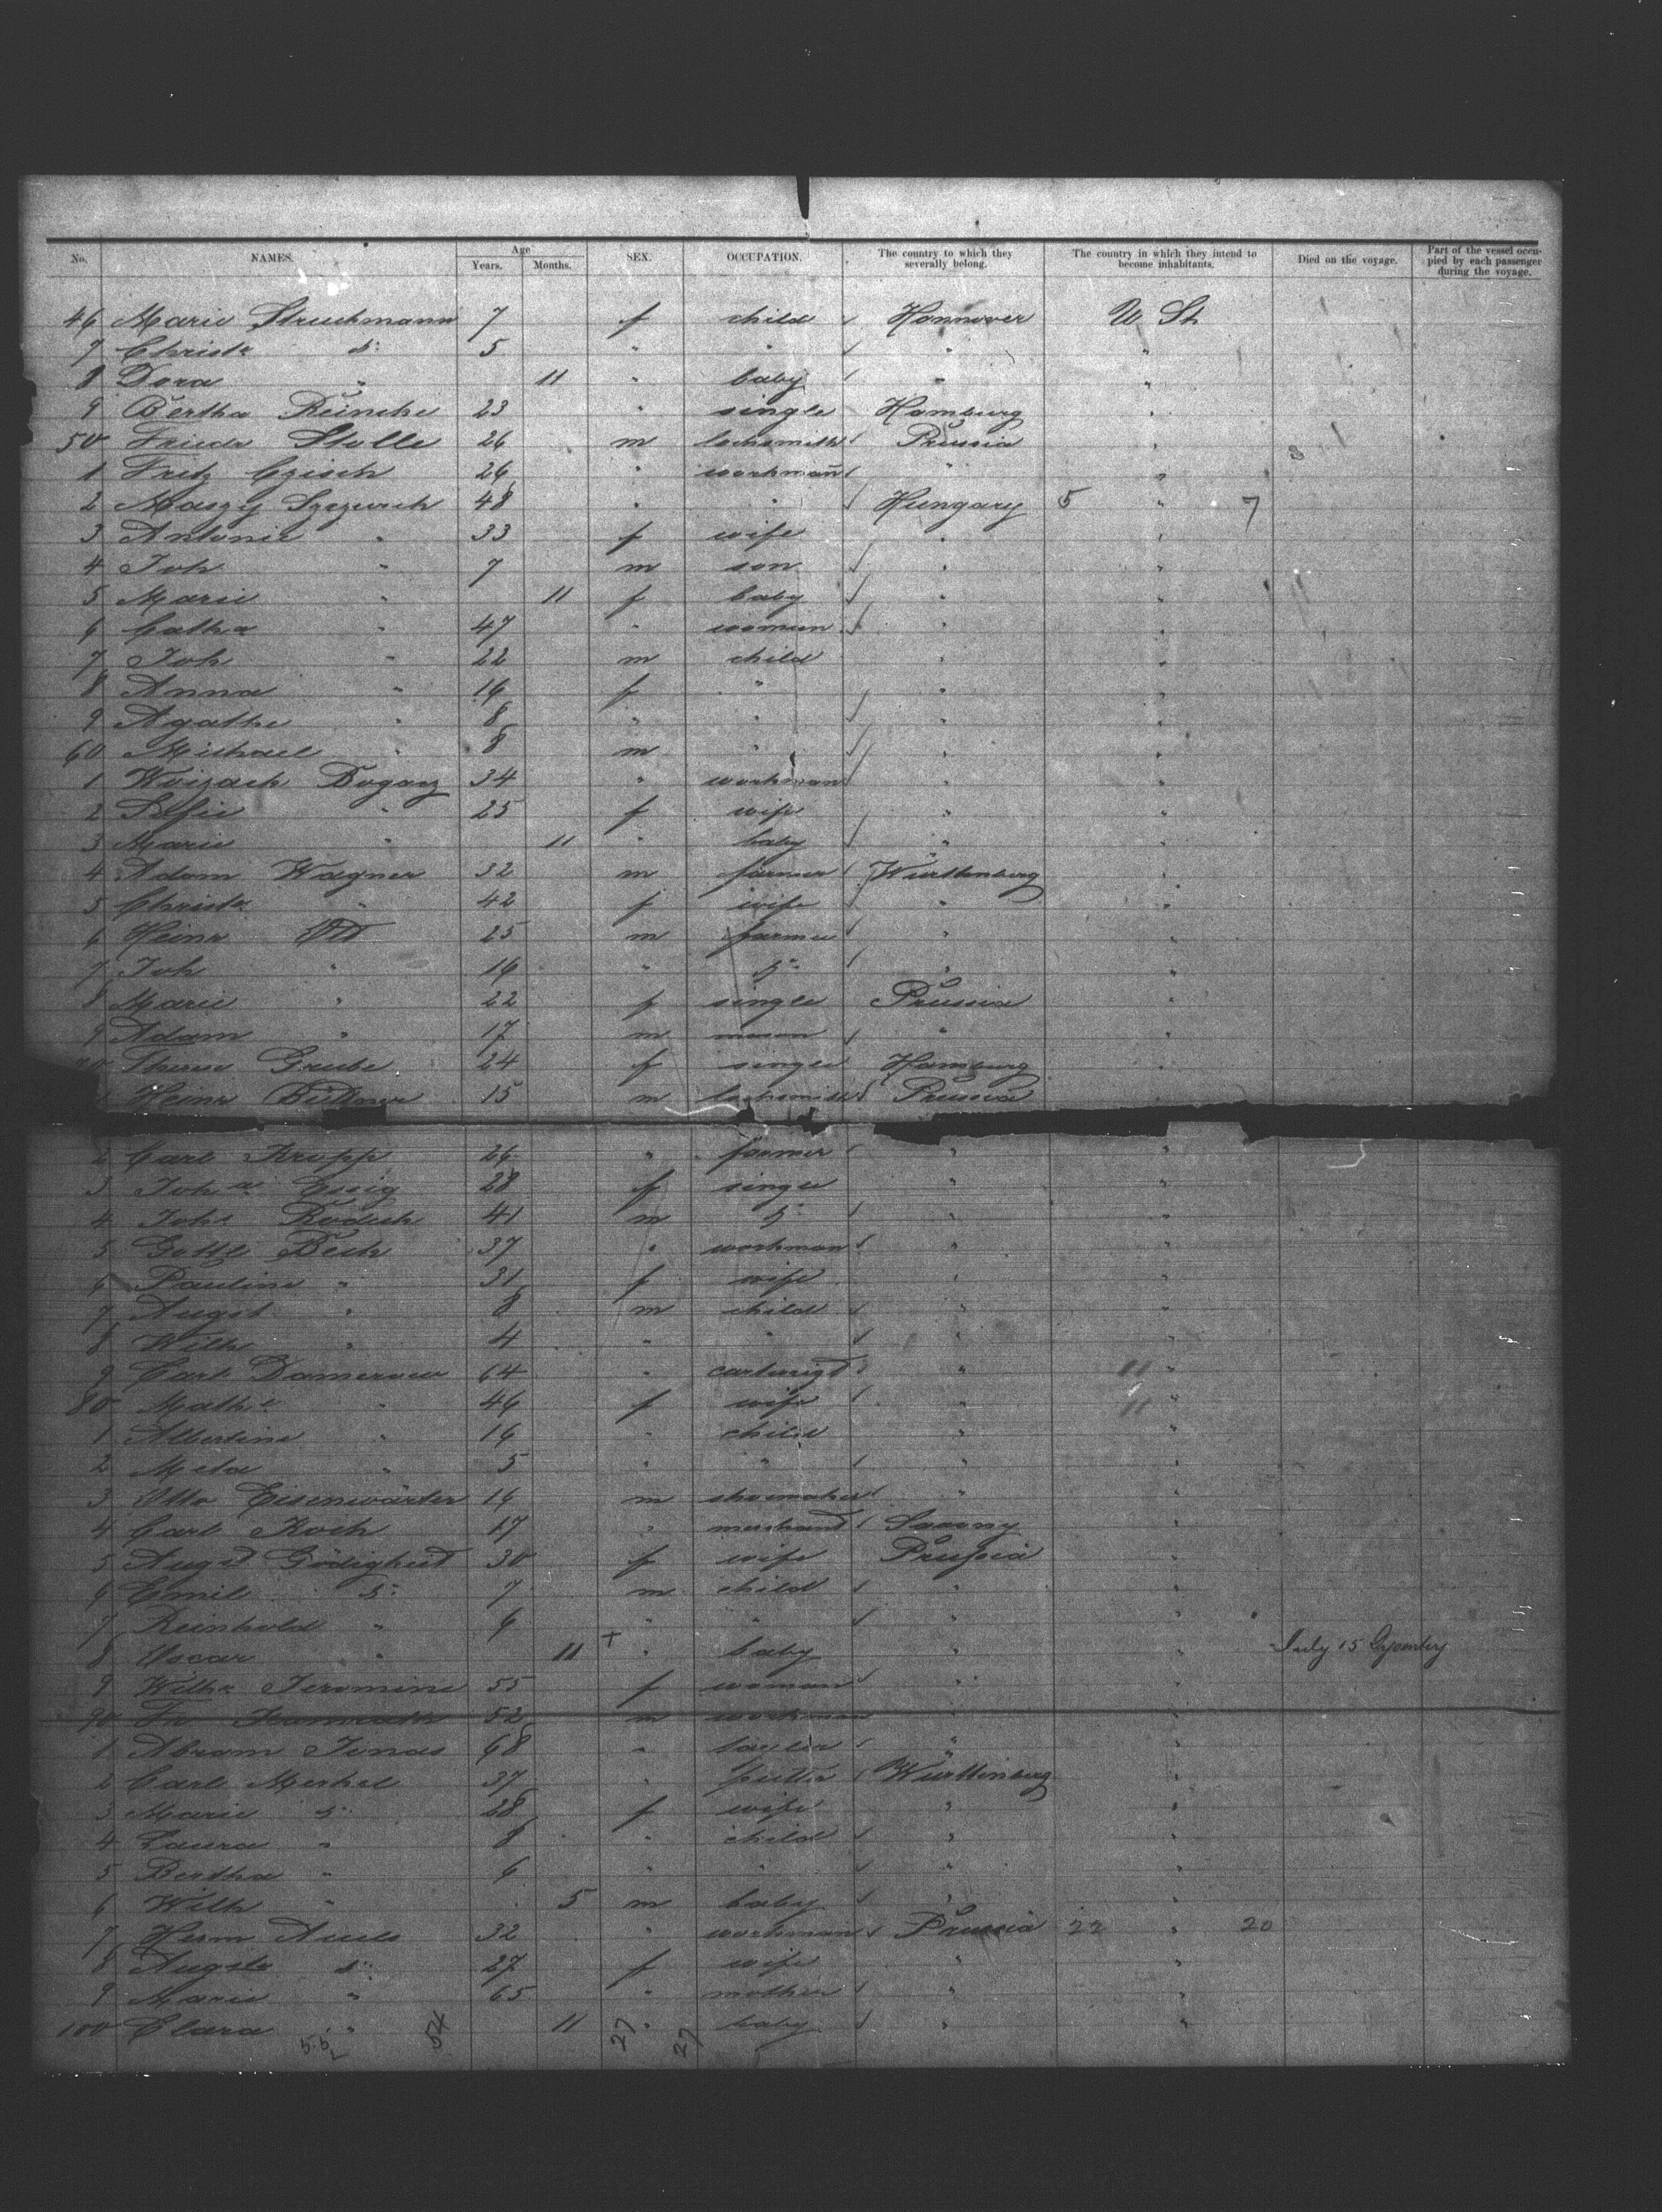 No. NAMES. Age Years. Months. SEX. OCCUPATION. The country to which they severally belong. The country in which they intend to become inhabitants. Died on the voyage. Part of the vessel occupied by each passenger during the voyage.
46 Marie Struckmann 7 f child Hannover U St
7 Christe d: 5 " " " "
8 Dora " 11 " baby " "
9 Bertha Reincke 23 " single Hamburg "
50 Friedr Stolle 26 m locksmith Prussia "
1 Fritz Czisch 26 " workman " "
2 48 " " Hungary 5 " 7
3 Antonie " 33 f wife " "
4 Joh " 7 m son " "
5 Marie " 11 f baby " "
6 Catha " 47 " woman " "
7 Joh " 22 m child " "
8 Anna " 16 f " " "
9 Agathe " 8 " " " "
60 Michael " 8 m " " "
1 Bogacz 34 " workman " "
2 " 25 f wife " "
3 Marie " 11 " baby " "
4 Adam Wagner 32 m farmer Württenberg "
5 Christe " 42 f wife " "
6 Heinr Ott 25 m farmer " "
7 Joh " 16 " d: " "
8 Marie " 22 f single Prussia "
9 Adam " 17 m mason " "
70 Grube 24 f single Hamburg "
Heinr Büttner 15 m locksmith Prussia "
2 Carl Kropp 26 " farmer " "
3 Joha Essig 28 f single " "
4 Joh. 41 m d: " "
5 Gottl Beck 37 " workman " "
6 Pauline " 31 f wife " "
7 Augst " 8 m child " "
8 Wilh " 4 " " " "
9 Carl Damerow 64 " cartwrigt " "
80 Mathe " 46 f wife " "
1 Albertine " 16 " child " "
2 Meta " 5 " " " "
3 Otto Eisenwärter 16 m shoemaker " "
4 Carl Koch 17 " merchand Saxony "
5 Augst 30 f wife Prussia "
6 Emil d: 7 m child " "
7 Reinhold " 6 " " " "
8 Oscar " 11 + " baby " " July 15
9 Wilhe Jeromine 55 f woman " "
90 Fr 52 m workman "
1 Abram Jonas 68 " " "
2 Carl Merkel 37 " Württenberg "
3 Marie d: 28 f wife " "
4 Laura " 8 " child " "
5 Bertha " 6 " " " "
6 Wilh " 5 m baby " "
7 Herm 32 " workman Prussia 22 " 20
8 Augste d: 27 f wife " "
9 Marie " 65 " mother " "
100 Clara " 11 " baby " "
54 27 27